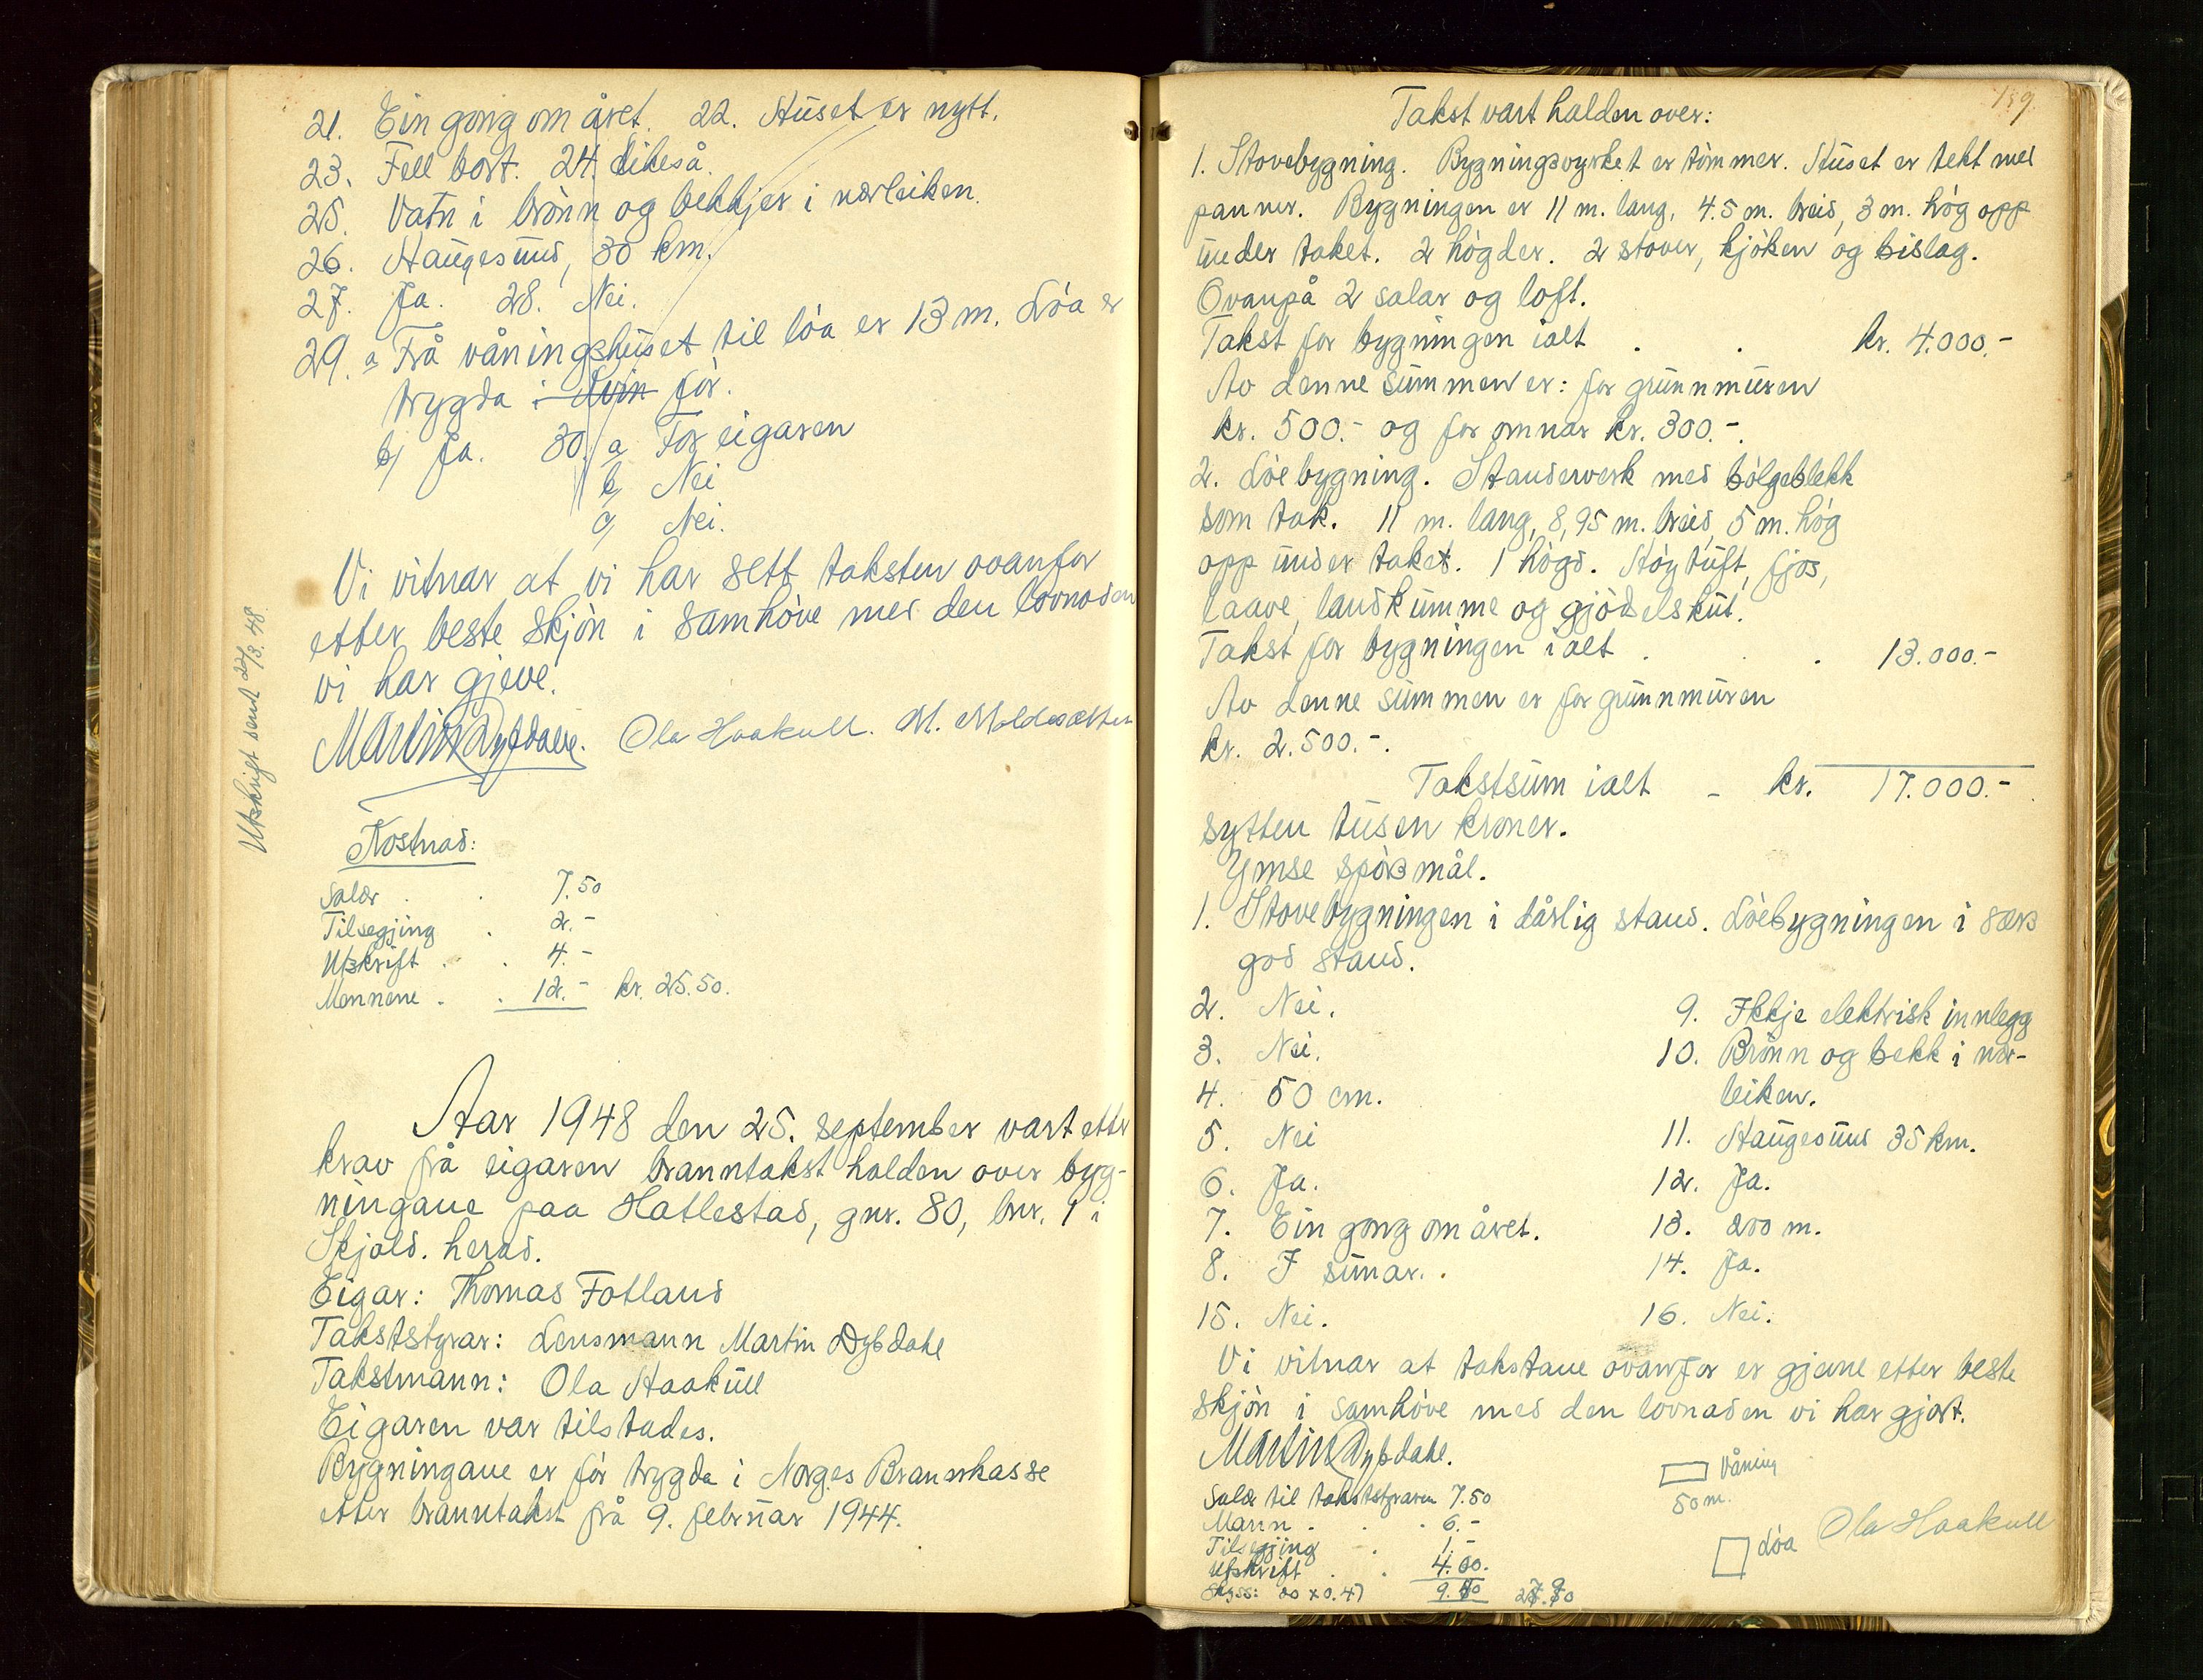 21. Ein gong om året. 22. Huset er nytt.
23. Fell bort. 24. Likeså.
25. Vatn i brönn og bekkjer i nærleiken.
26. Haugesund, 30 km.
27. Ja. 28. Nei.
29. a Frå våningshuset til löa er 13 m. Löa er
trygda i för.
b) Ja. 30. a For eigaren
b, Nei
c, Nei.
Vi vitnar at vi har sett taksten ovanfor
etter beste skjön i samhöve med den lovnaden
vi har gjeve.
Martin Dybdahl. Ola Haakull. M. Moldesæther
Utskrift send 22/3. 48.
Kostnad:
Salær . . 7.50
Tilsegjing . 2.-
Utskrift . . 4.-
Mennene . . 12.- kr. 25.50.
Aar 1948 den 25. september vart etter
krav frå eigaren branntakst halden over byg-
ningane paa Hatlestad, gnr. 80, bnr. 1 i
Skjold. herad.
Eigar: Thomas Fotland
Takststyrar: Lensmann Martin Dybdahl
Takstmann: Ola Haakull
Eigaren var tilstades.
Bygningane er för trygda i Norges Brannkasse
etter branntakst frå 9. februar 1944.
159.
Takst vart halden over:
1. Stovebygning. Bygningsvyrket er tömmer. Huset er tekt med
panner. Bygningen er 11 m. lang, 4.5 m. breid, 3 m. hög opp
under taket. 2 högder. 2 stover, kjöken og bislag.
Ovanpå 2 salar og loft.
Takst for bygningen ialt . . kr. 4.000.-
Av denne summen er: for grunnmuren
kr. 500.- og for omnar kr. 300.-.
2. Löebygning. Standerverk med bölgeblekk
som tak. 11 m. lang, 8,95 m. breid, 5 m. hög
opp under taket. 1 högd. Höytuft, fjos,
laave, landkumme og gjödselskut.
Takst for bygningen ialt . . . 13.000.-
Av denne summen er for grunnmuren
kr. 2.500.-.
Takstsum ialt - kr. 17.000.-
sytten tusen kroner.
Ymse spörsmål.
1. Stovebygningen i dårlig stand. Löebygningen i særs
god stand.
2. Nei.
3. Nei.
4. 50 cm.
5. Nei
6. Ja.
7. Ein gong om året.
8. I sunar.
9. Ikkje elektrisk innlegg
10. Brönn og bekk i nær-
leiken.
11. Haugesund 35 km.
12. Ja.
13. 200 m.
14. Ja.
15. Nei. 16. Nei.
Vi vitnar at takstane ovanfor er gjevne etter beste
skjön i samhöve med den lovnaden vi har gjort.
Martin Dybdahl.
Salær til takststyraren 7.50
Mann . . . 6.-
Tilsegjing . 1.-
Utskrift . . 4.00.
Skyss: 20 x 0.47
Våning
50 m.
Löa
Ola Haakull